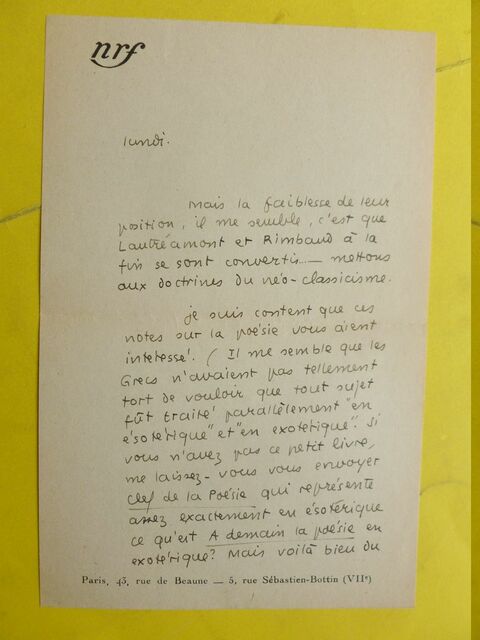 nrf
lundi.
Mais la faiblesse de leur
position, il me semble, c'est que
Lautréamont et Rimbaud à la
fin se sont convertis — mettons
aux doctrines du néo-classicisme.
je suis content que ces
notes sur la poésie vous aient
intéressé. (Il me semble que les
Grecs n'avaient pas tellement
tort de vouloir que tout sujet
fût traité parallèlement "en
ésotérique" et "en exotérique". Si
vous n'avez pas ce petit livre,
me laissez-vous vous envoyer
Clef de la Poésie qui représente
assez exactement en ésotérique
ce qu'est A demain la poésie en
exotérique? Mais voilà bien du
Paris, 43, rue de Beaune — 5, rue Sébastien-Bottin (VIIe)